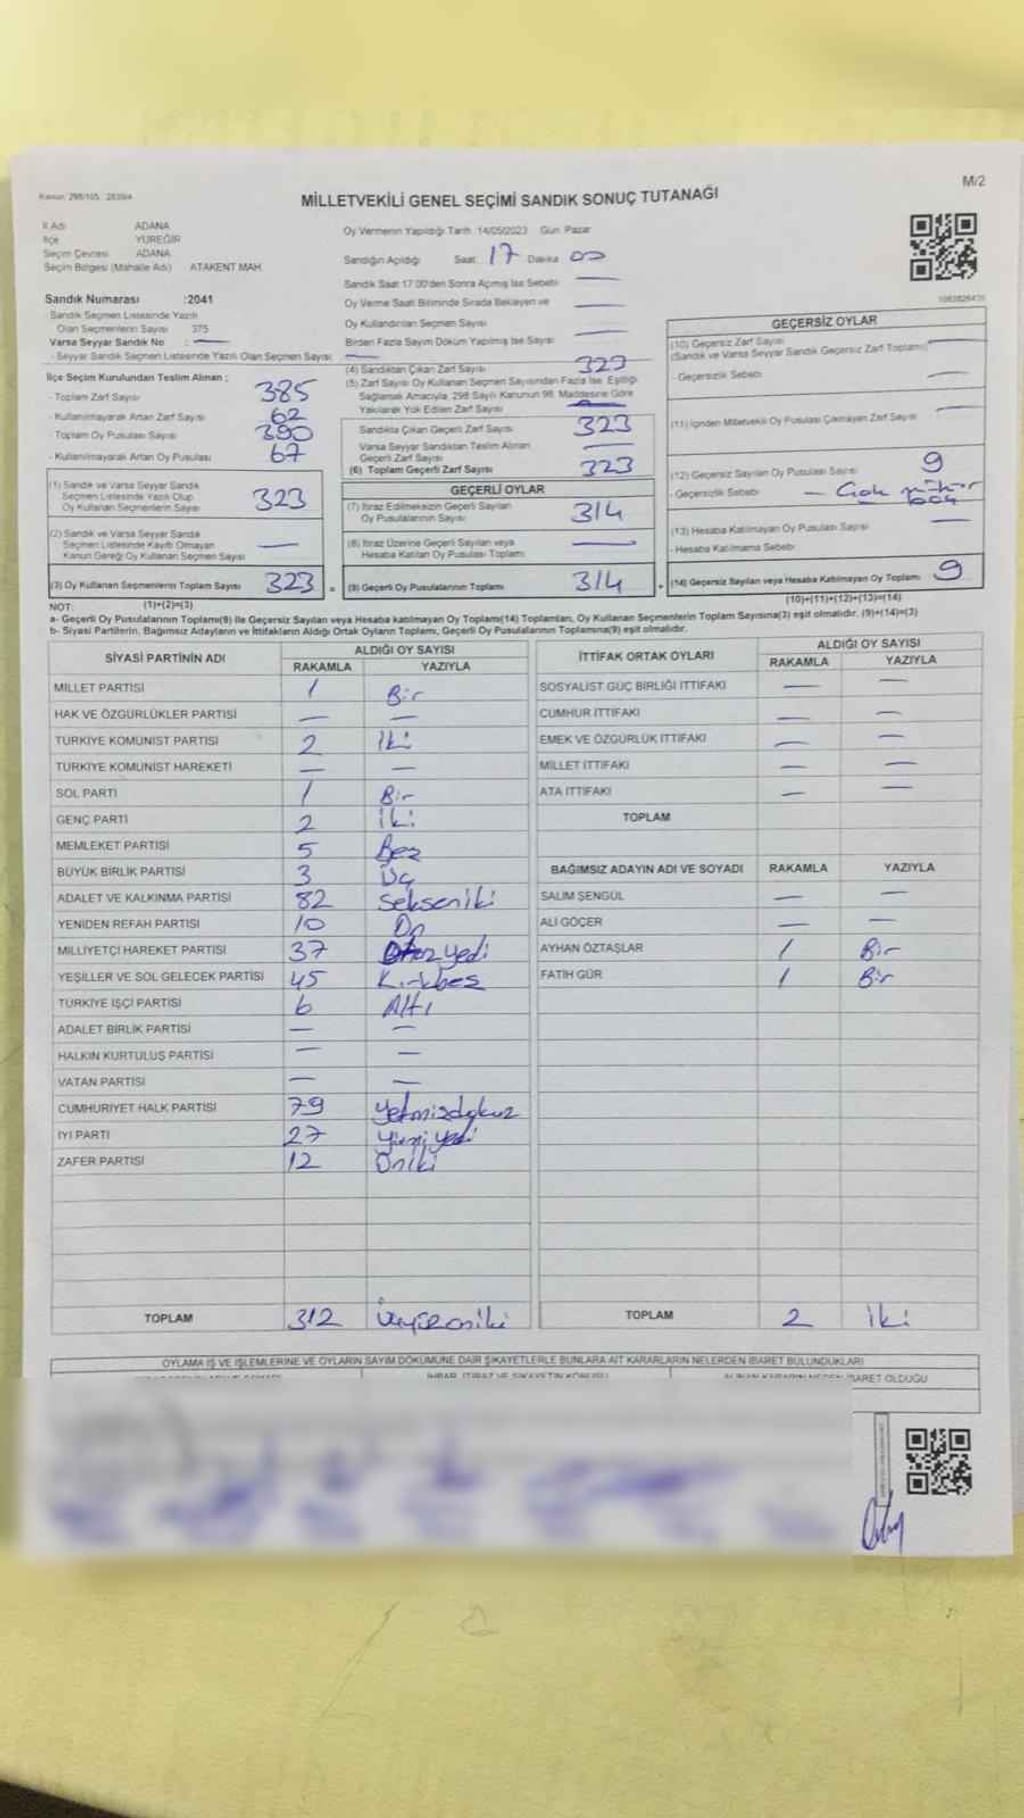 M/2
MİLLETVEKİLİ GENEL SEÇİMİ SANDIK SONUÇ TUTANAĞI
İl Adı ADANA
İlçe YÜREĞİR
Seçim Çevresi ADANA
Seçim Bölgesi (Mahalle Adı) ATAKENT MAH.
Sandık Numarası :2041
- Sandık Seçmen Listesinde Yazılı
Olan Seçmenlerin Sayısı 375
Varsa Seyyar Sandık No : —
- Seyyar Sandık Seçmen Listesinde Yazılı Olan Seçmen Sayısı —
İlçe Seçim Kurulundan Teslim Alınan :
- Toplam Zarf Sayısı 385
- Kullanılmayarak Artan Zarf Sayısı 62
- Toplam Oy Pusulası Sayısı 390
- Kullanılmayarak Artan Oy Pusulası 67
(1) Sandık ve Varsa Seyyar Sandık
Seçmen Listesinde Yazılı Olup
Oy Kullanan Seçmenlerin Sayısı 323
(2) Sandık ve Varsa Seyyar Sandık
Seçmen Listesinde Kayıtlı Olmayan
Kanun Gereği Oy Kullanan Seçmen Sayısı —
(3) Oy Kullanan Seçmenlerin Toplam Sayısı 323
Oy Vermenin Yapıldığı Tarih :14/05/2023 Gün: Pazar
Sandığın Açıldığı Saat: 17 Dakika 00
Sandık Saat 17.00'den Sonra Açılmış İse Sebebi —
Oy Verme Saati Bitiminde Sırada Bekleyen ve —
Oy Kullandırılan Seçmen Sayısı
Birden Fazla Sayım Döküm Yapılmış İse Sayısı —
(4) Sandıktan Çıkan Zarf Sayısı 323
(5) Zarf Sayısı Oy Kullanan Seçmen Sayısından Fazla İse, Eşitliği
Sağlamak Amacıyla, 298 Sayılı Kanunun 98. Maddesine Göre
Yakılarak Yok Edilen Zarf Sayısı —
Sandıkta Çıkan Geçerli Zarf Sayısı 323
Varsa Seyyar Sandıktan Teslim Alınan
Geçerli Zarf Sayısı —
(6) Toplam Geçerli Zarf Sayısı 323
GEÇERLİ OYLAR
(7) İtiraz Edilmeksizin Geçerli Sayılan
Oy Pusulalarının Sayısı 314
(8) İtiraz Üzerine Geçerli Sayılan veya
Hesaba Katılan Oy Pusulası Toplamı —
(9) Geçerli Oy Pusulalarının Toplamı 314
GEÇERSİZ OYLAR
(10) Geçersiz Zarf Sayısı
(Sandık ve Varsa Seyyar Sandık Geçersiz Zarf Toplamı) —
- Geçersizlik Sebebi —
(11) İçinden Milletvekili Oy Pusulası Çıkmayan Zarf Sayısı —
(12) Geçersiz Sayılan Oy Pusulası Sayısı 9
- Geçersizlik Sebebi — Çok mühür
boş
(13) Hesaba Katılmayan Oy Pusulası Sayısı —
- Hesaba Katılmama Sebebi
(14) Geçersiz Sayılan veya Hesaba Katılmayan Oy Toplamı 9
NOT: (1)+(2)=(3) (10)+(11)+(12)+(13)=(14)
a- Geçerli Oy Pusulalarının Toplamı(9) ile Geçersiz Sayılan veya Hesaba katılmayan Oy Toplamı(14) Toplamları, Oy Kullanan Seçmenlerin Toplam Sayısına(3) eşit olmalıdır. (9)+(14)=(3)
b- Siyasi Partilerin, Bağımsız Adayların ve İttifakların Aldığı Ortak Oyların Toplamı, Geçerli Oy Pusulalarının Toplamına(9) eşit olmalıdır.
SİYASİ PARTİNİN ADI ALDIĞI OY SAYISI
RAKAMLA YAZIYLA
MİLLET PARTİSİ 1 Bir
HAK VE ÖZGÜRLÜKLER PARTİSİ — —
TÜRKİYE KOMÜNİST PARTİSİ 2 İki
TÜRKİYE KOMÜNİST HAREKETİ — —
SOL PARTİ 1 Bir
GENÇ PARTİ 2 İki
MEMLEKET PARTİSİ 5 Beş
BÜYÜK BİRLİK PARTİSİ 3 Üç
ADALET VE KALKINMA PARTİSİ 82 Sekseniki
YENİDEN REFAH PARTİSİ 10 On
MİLLİYETÇİ HAREKET PARTİSİ 37 Otuzyedi
YEŞİLLER VE SOL GELECEK PARTİSİ 45 Kırkbeş
TÜRKİYE İŞÇİ PARTİSİ 6 Altı
ADALET BİRLİK PARTİSİ — —
HALKIN KURTULUŞ PARTİSİ — —
VATAN PARTİSİ — —
CUMHURİYET HALK PARTİSİ 79 Yetmişdokuz
İYİ PARTİ 27 Yirmiyedi
ZAFER PARTİSİ 12 Oniki
TOPLAM 312 Üçyüzoniki
İTTİFAK ORTAK OYLARI ALDIĞI OY SAYISI
RAKAMLA YAZIYLA
SOSYALİST GÜÇ BİRLİĞİ İTTİFAKI — —
CUMHUR İTTİFAKI — —
EMEK VE ÖZGÜRLÜK İTTİFAKI — —
MİLLET İTTİFAKI — —
ATA İTTİFAKI — —
TOPLAM
BAĞIMSIZ ADAYIN ADI VE SOYADI RAKAMLA YAZIYLA
SALİM ŞENGÜL — —
ALİ GÖÇER — —
AYHAN ÖZTAŞLAR 1 Bir
FATİH GÜR 1 Bir
TOPLAM 2 İki
OYLAMA İŞ VE İŞLEMLERİNE VE OYLARIN SAYIM DÖKÜMÜNE DAİR ŞİKAYETLERLE BUNLARA AİT KARARLARIN NELERDEN İBARET BULUNDUKLARI